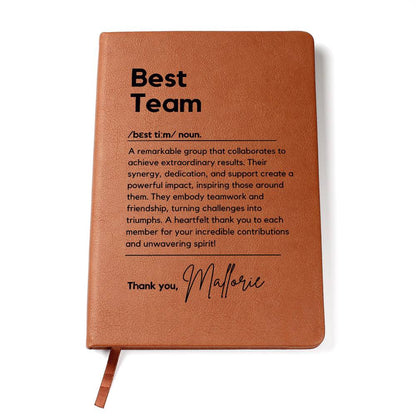 Best
Team
/bɛst tiːm/ noun.
A remarkable group that collaborates to
achieve extraordinary results. Their
synergy, dedication, and support create a
powerful impact, inspiring those around
them. They embody teamwork and
friendship, turning challenges into
triumphs. A heartfelt thank you to each
member for your incredible contributions
and unwavering spirit!
Thank you, Mallorie